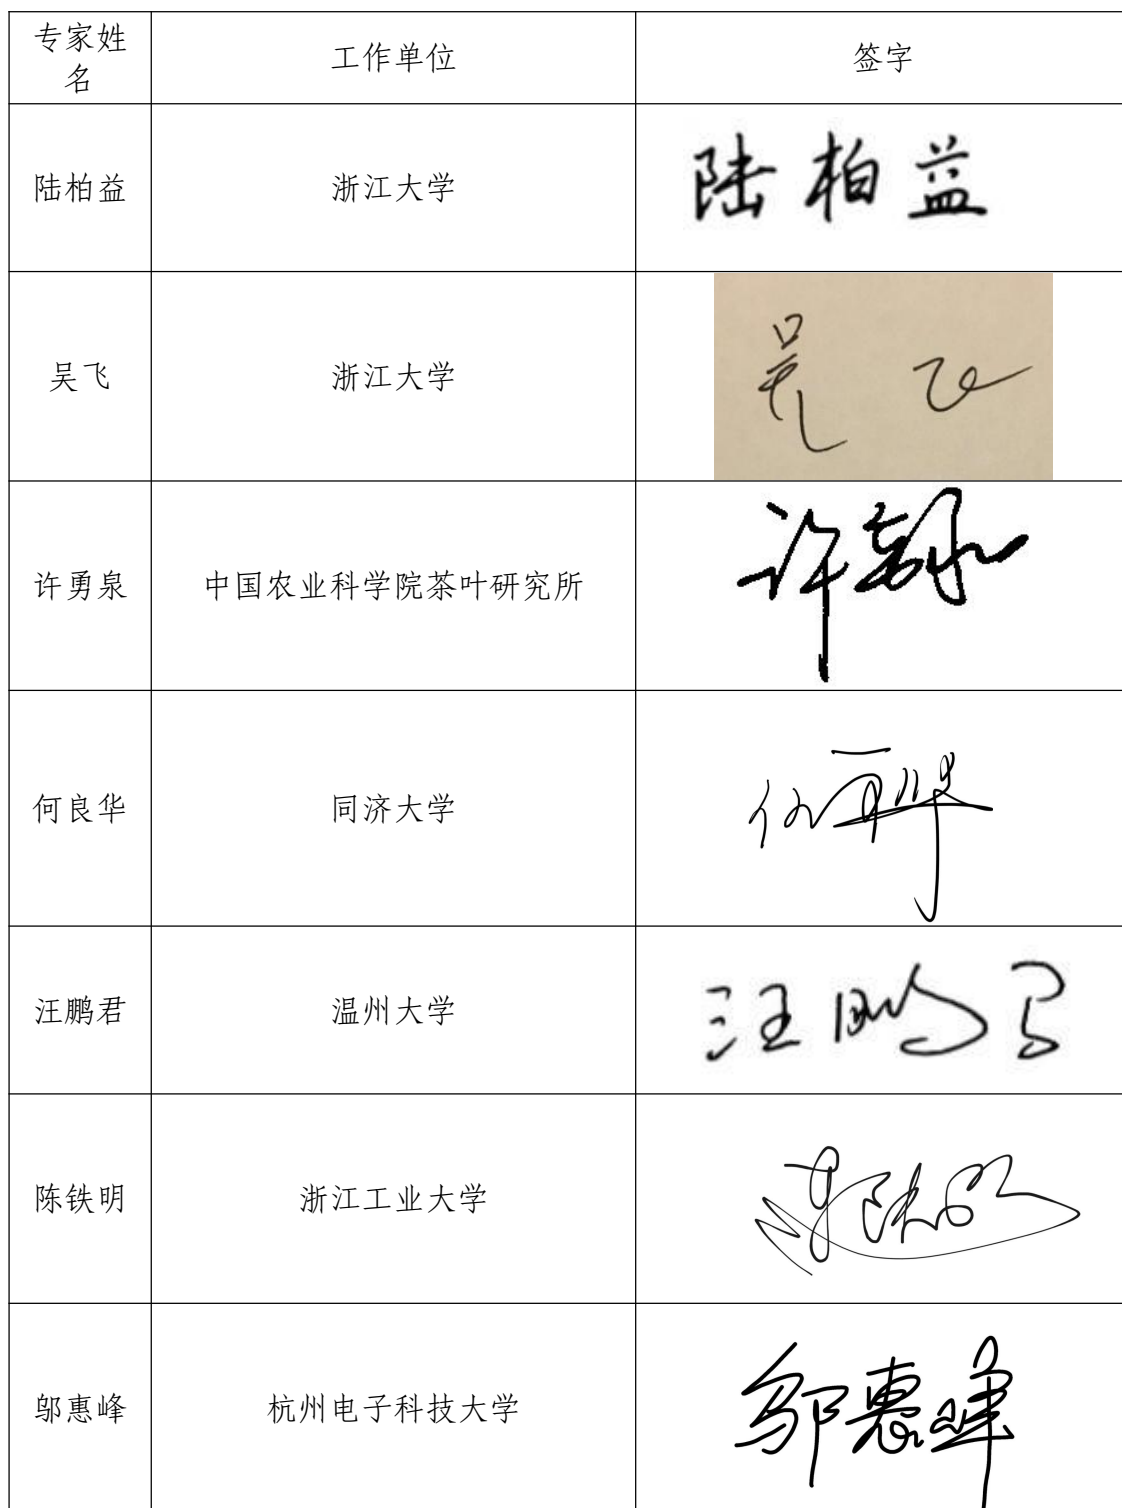 专家姓
名
工作单位
签字
陆柏益
浙江大学
陆柏益
吴飞
浙江大学
吴飞
许勇泉
中国农业科学院茶叶研究所
许勇泉
何良华
同济大学
何良华
汪鹏君
温州大学
汪鹏君
陈铁明
浙江工业大学
陈铁明
邬惠峰
杭州电子科技大学
邬惠峰